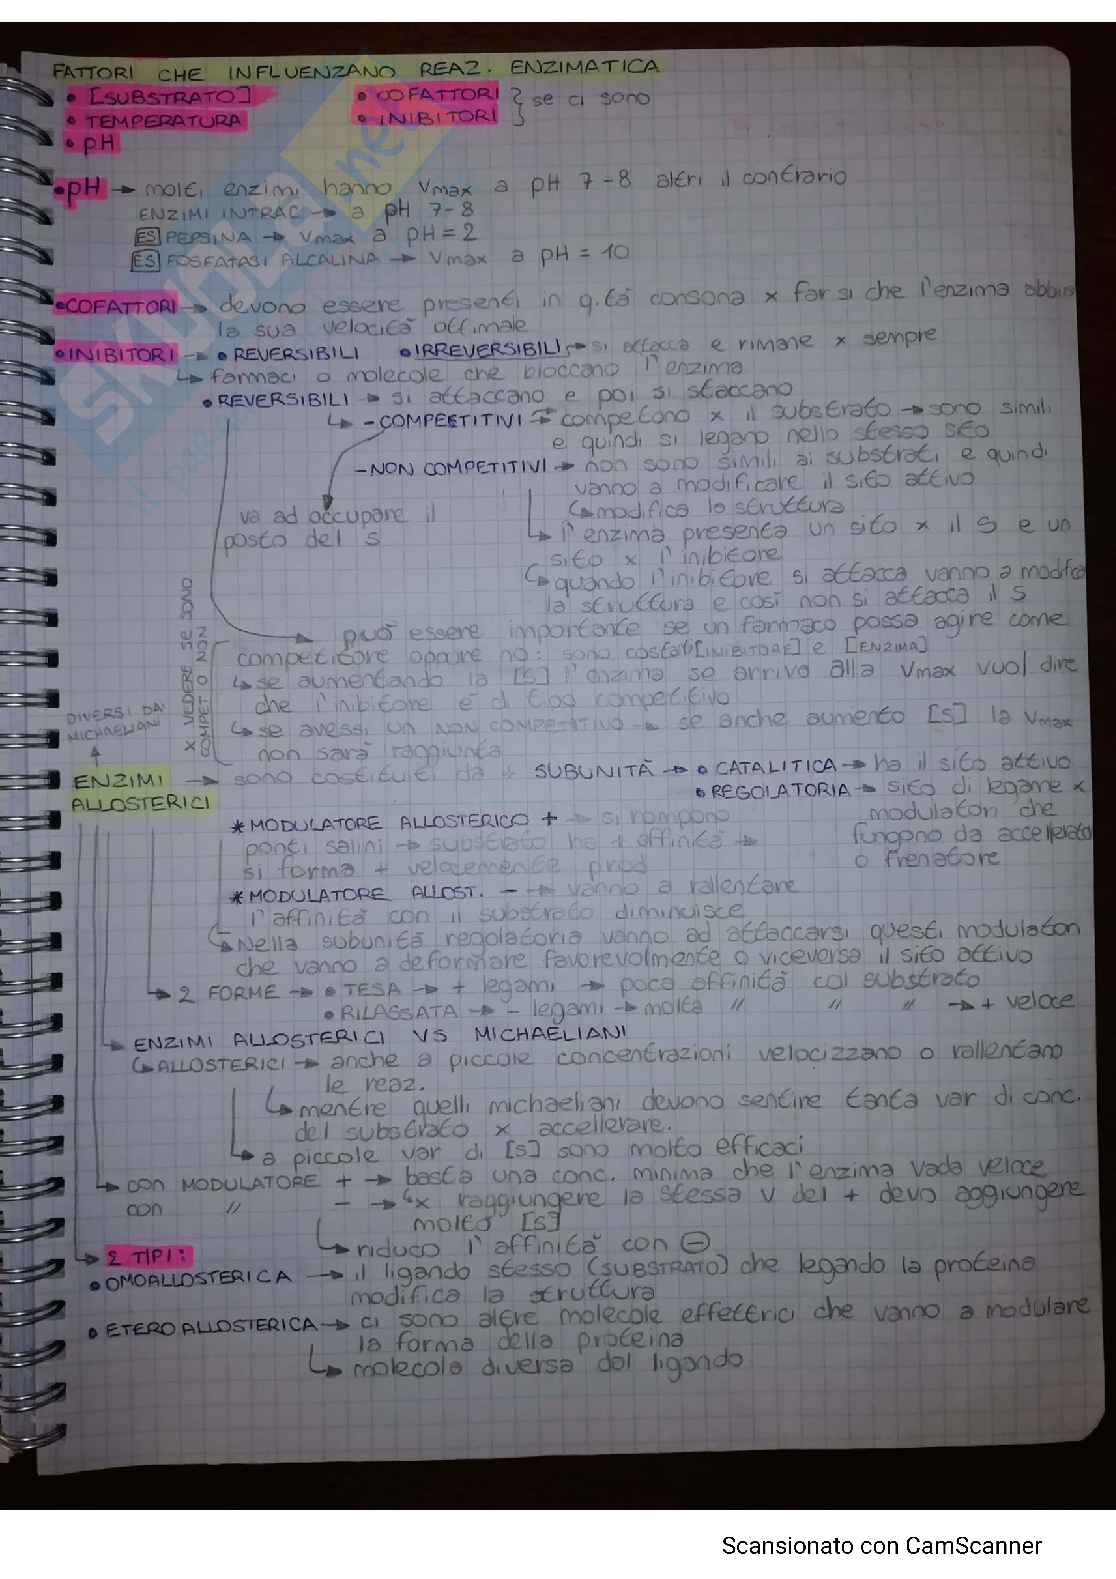 FATTORI CHE INFLUENZANO REAZ. ENZIMATICA
• [SUBSTRATO] • COFATTORI } se ci sono
• TEMPERATURA • INIBITORI
• pH
• pH → molti enzimi hanno Vmax a pH 7-8 altri il contrario
ENZIMI INTRAC → a pH 7-8
ES PEPSINA → Vmax a pH = 2
ES FOSFATASI ALCALINA → Vmax a pH = 10
• COFATTORI → devono essere presenti in q.tà consona x far si che l'enzima abbia
la sua velocità ottimale
• INIBITORI → • REVERSIBILI • IRREVERSIBILI → si attacca e rimane x sempre
↳ farmaci o molecole che bloccano l'enzima
• REVERSIBILI → si attaccano e poi si staccano
↳ - COMPETITIVI → competono x il substrato → sono simili
e quindi si legano nello stesso sito
- NON COMPETITIVI → non sono simili ai substrati e quindi
vanno a modificare il sito attivo
↳ modifica la struttura
va ad occupare il
posto del S
↳ l'enzima presenta un sito x il S e un
sito x l'inibitore
↳ quando l'inibitore si attacca vanno a modifica
la struttura e così non si attacca il S
→ può essere importante se un farmaco possa agire come
competitore oppure no: sono costati [INIBITORE] e [ENZIMA]
↳ se aumentando la [S] l'enzima se arriva alla Vmax vuol dire
che l'inibitore è di tipo competitivo
↳ se avessi un NON COMPETITIVO → se anche aumento [S] la Vmax
non sarà raggiunta
X VEDERE SE SONO
COMPET O NON
DIVERSI DAI
MICHAELIANI
ENZIMI
ALLOSTERICI
→ sono costituiti da * SUBUNITÀ → • CATALITICA → ha il sito attivo
• REGOLATORIA → sito di legame x
modulatori che
fungono da accellerato
o frenatore
* MODULATORE ALLOSTERICO + → si rompono
ponti salini → substrato ha + affinità →
si forma + velocemente prod
* MODULATORE ALLOST. - → vanno a rallentare
l'affinità con il substrato diminuisce
↳ Nella subunità regolatoria vanno ad attaccarsi questi modulatori
che vanno a deformare favorevolmente o viceversa il sito attivo
↳ 2 FORME → • TESA → + legami → poca affinità col substrato
• RILASSATA → - legami → molta // // // → + veloce
↳ ENZIMI ALLOSTERICI VS MICHAELIANI
↳ ALLOSTERICI → anche a piccole concentrazioni velocizzano o rallentano
le reaz.
↳ mentre quelli michaeliani devono sentire tanta var di conc.
del substrato x accellerare.
↳ a piccole var di [S] sono molto efficaci
↳ con MODULATORE + → basta una conc. minima che l'enzima vada veloce
con // - → ↳ x raggiungere la stessa v del + devo aggiungere
molto [S]
↳ riduco l'affinità con ⊖
↳ 2 TIPI:
• OMOALLOSTERICA → il ligando stesso (SUBSTRATO) che legando la proteina
modifica la struttura
• ETEROALLOSTERICA → ci sono altre molecole effettrici che vanno a modulare
la forma della proteina
↳ molecola diversa dal ligando
Scansionato con CamScanner